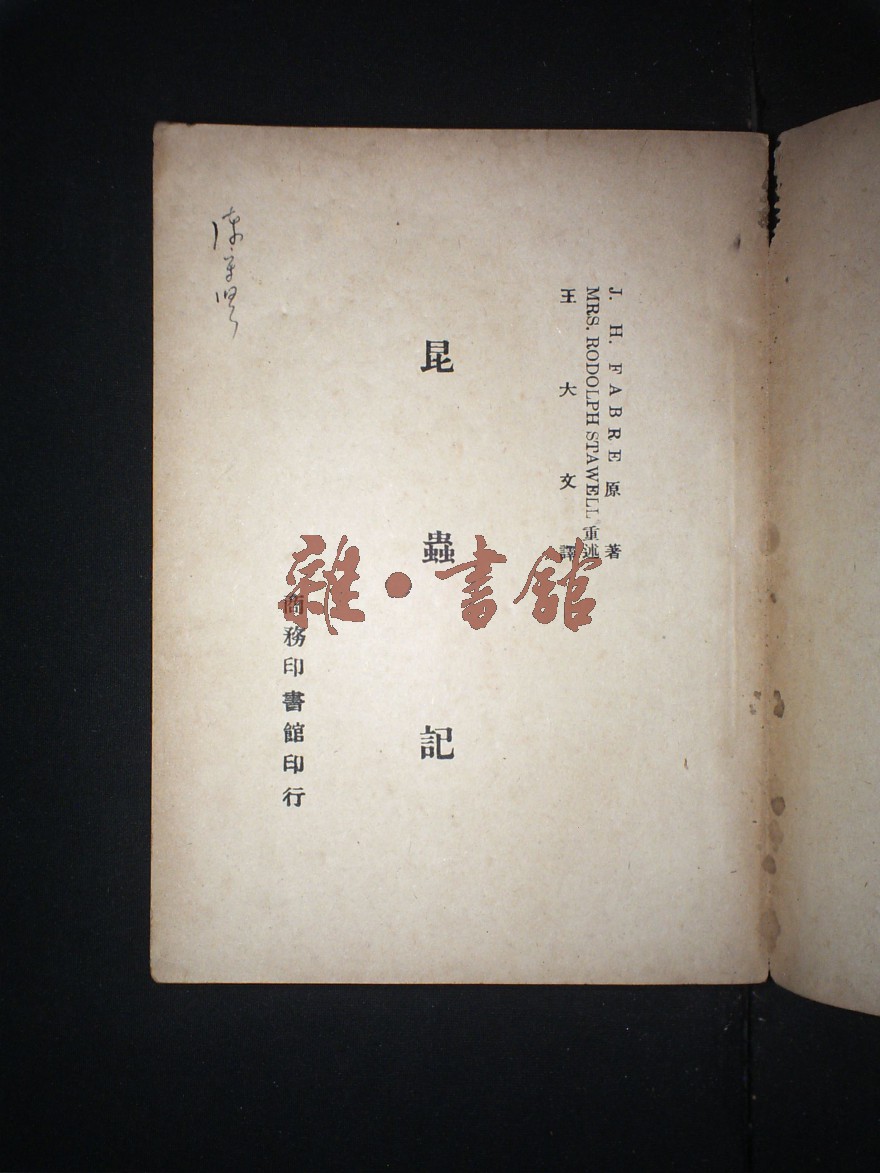 J. H. FABRE 原著
MRS. RODOLPH STAWELL 重述
王大文譯
昆蟲記
商務印書館印行
雜·書館